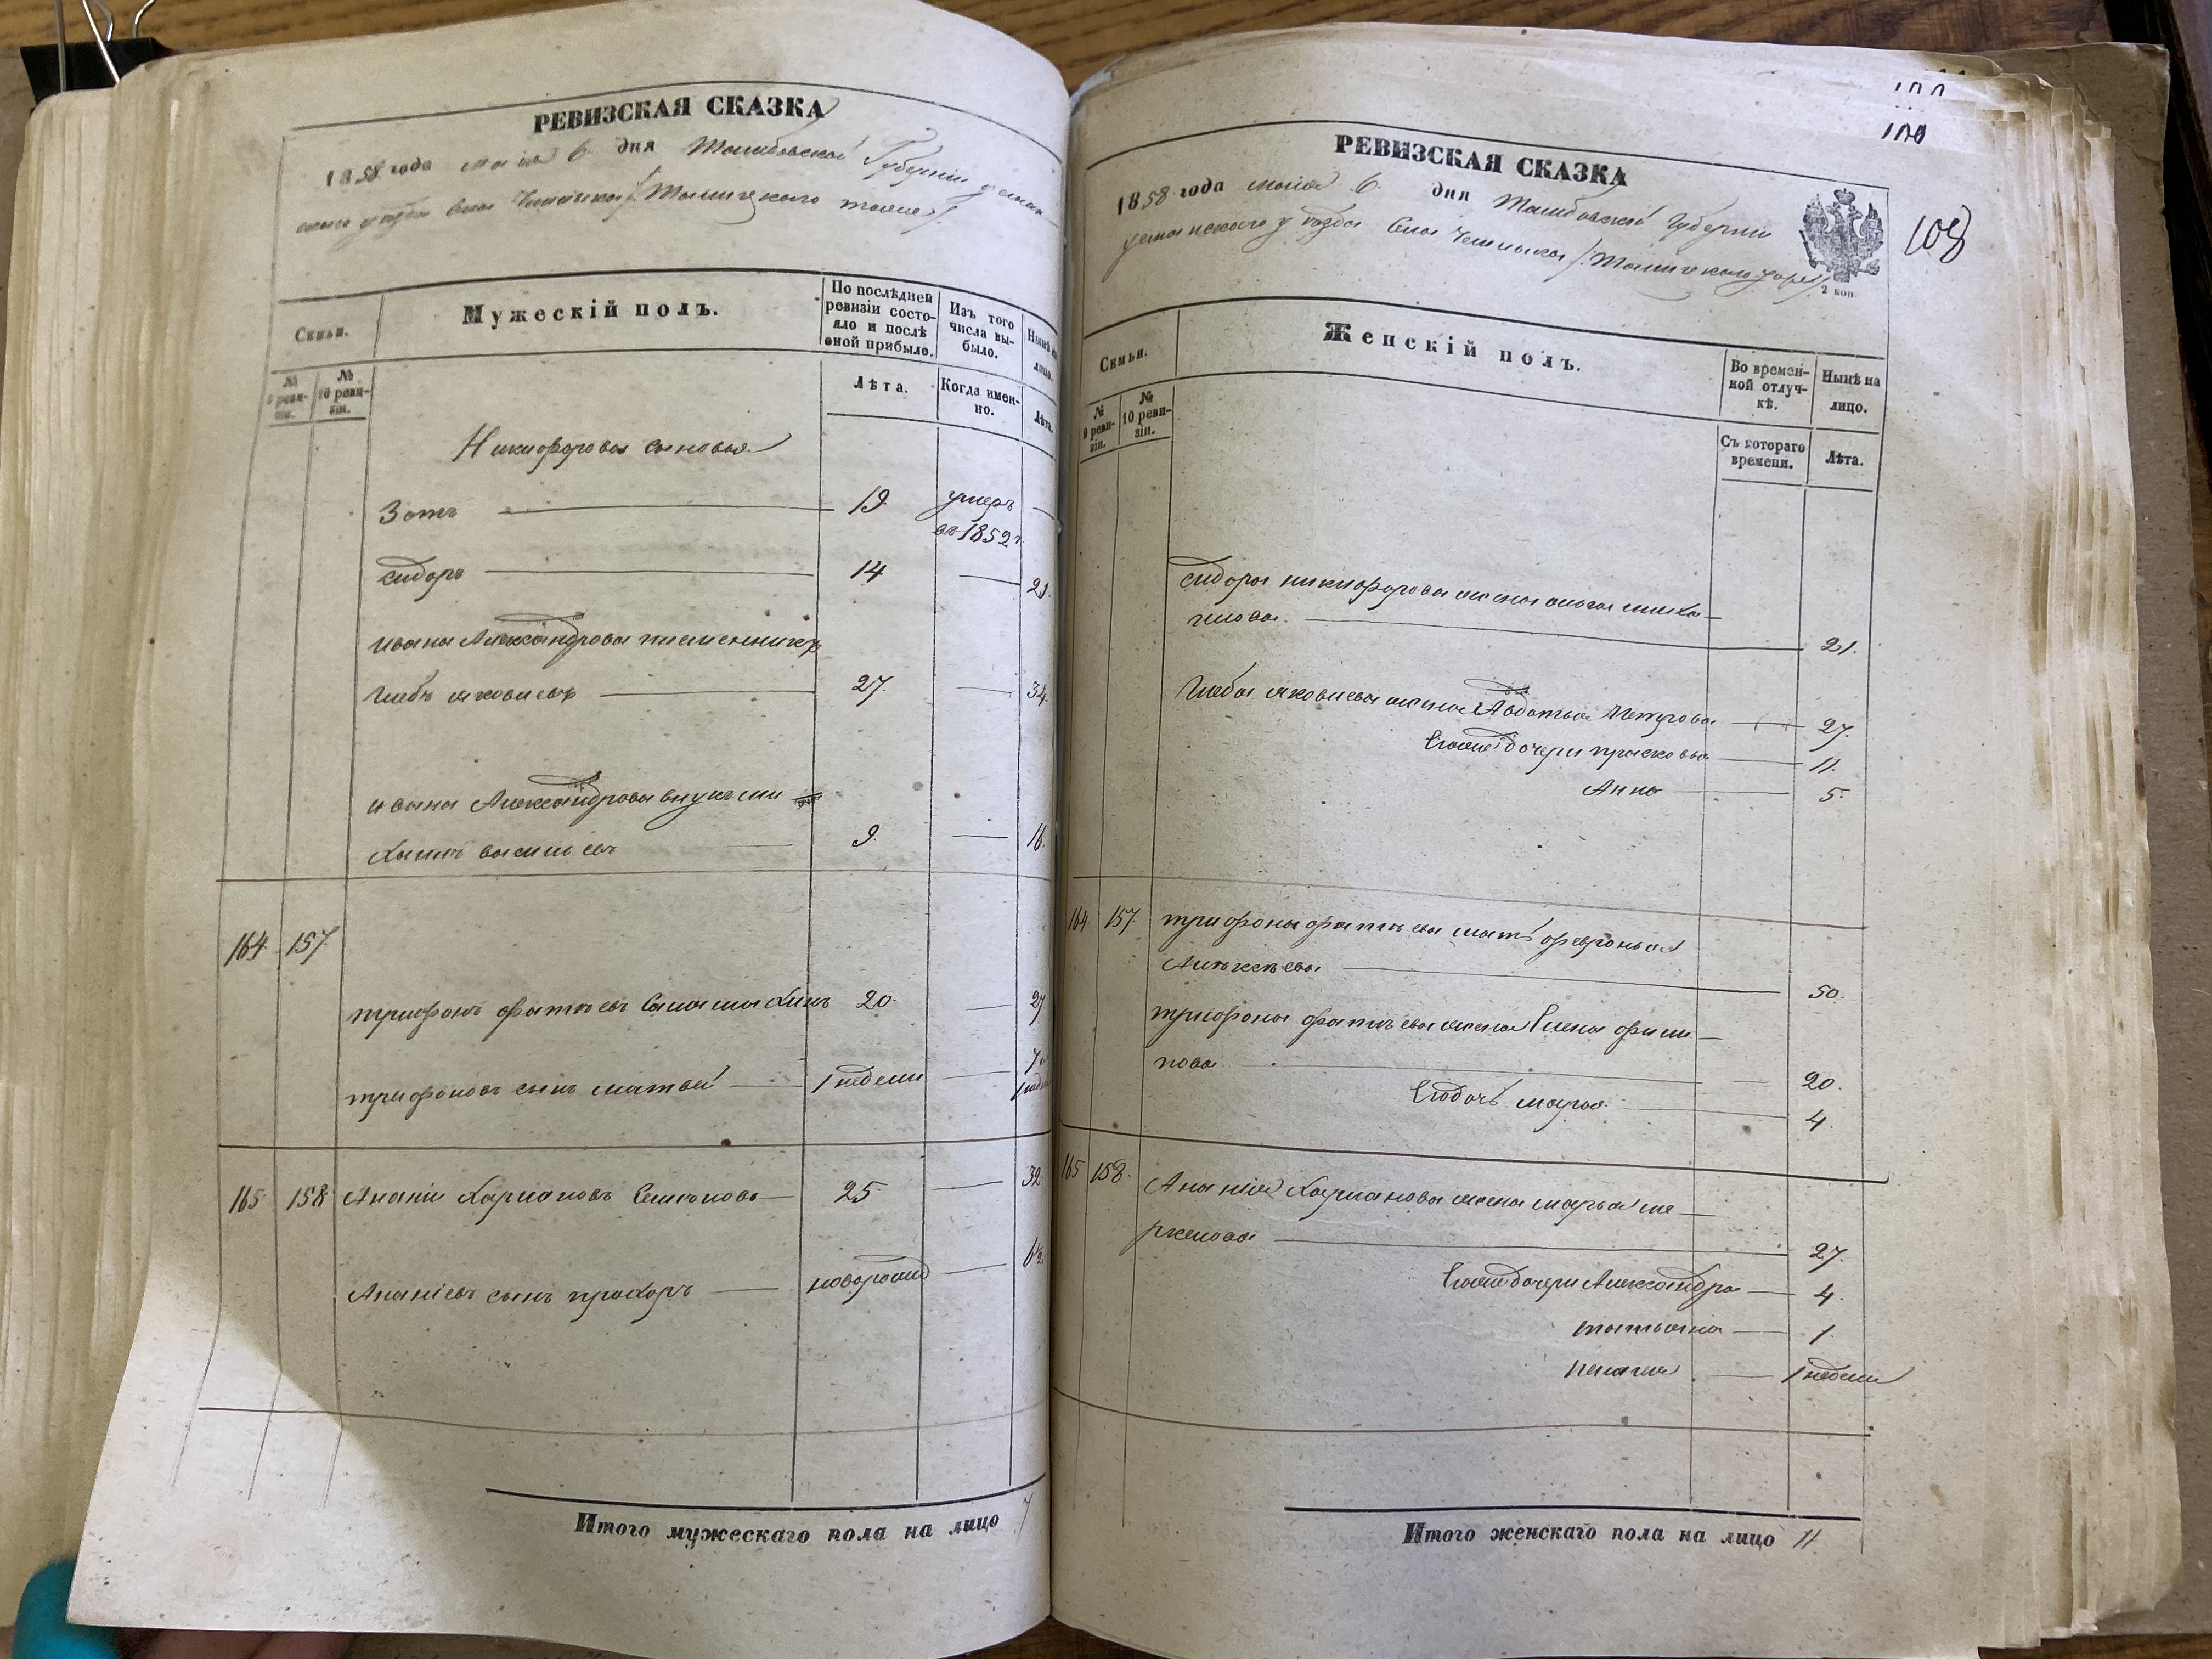 РЕВИЗСКАЯ СКАЗКА
1858 года мая 6 дня Тамбовской Губернии усман-
скаго уезда села
Семьи.
Мужескій полъ.
По послѣдней ревизіи состо-яло и послѣ оной прибыло.
Изъ того числа вы-было.
Нынѣ на лицо.
№ 9 реви-зіи.
№ 10 реви-зіи.
Лѣта.
Когда имен-но.
Лѣта.
Никифоровы сыновья
Зотъ 19. умеръ
въ 1852 г.
сидоръ 14 21.
ивана Александрова племенникъ
Глебъ яковлевъ 27. 34.
ивана Александрова внукъ ми
хаилъ васильевъ 9. 16.
164 157
трифонъ фатѣевъ Саламахинъ 20. 27
трифоновъ сынъ матвей 1 недели 7 и
1 недели
165 158 Ананій Харлановъ Семѣновъ 25 32.
Ананіевъ сынъ прохоръ новорожд 6½
Итого мужескаго пола на лицо 7
100
РЕВИЗСКАЯ СКАЗКА
1858 года мая 6. дня Тамбовской Губерніи
усманскаго уезда села
2 коп.
108
Семьи.
Женскій полъ.
Во времен-ной отлуч-кѣ.
Нынѣ на лицо.
№ 9 реви-зіи.
№ 10 реви-зіи.
Съ котораго времени.
Лѣта.
сидора никифорова жена ольга миха
илова. 21.
Глеба яковлева жена Авдотья Петрова 27.
Егоже дочери прасковья 11.
Анна 5.
164 157. трифона фатѣева мать февронья
Алѣксѣева 50.
трифона фатѣева жена Елена фили
пова 20.
Егодочь марья 4.
165 158. Ананія Харланова жена марья ме
ркулова 27.
Егоже дочери Александра 4.
татьяна 1.
пелагея 1 недели
Итого женскаго пола на лицо 11